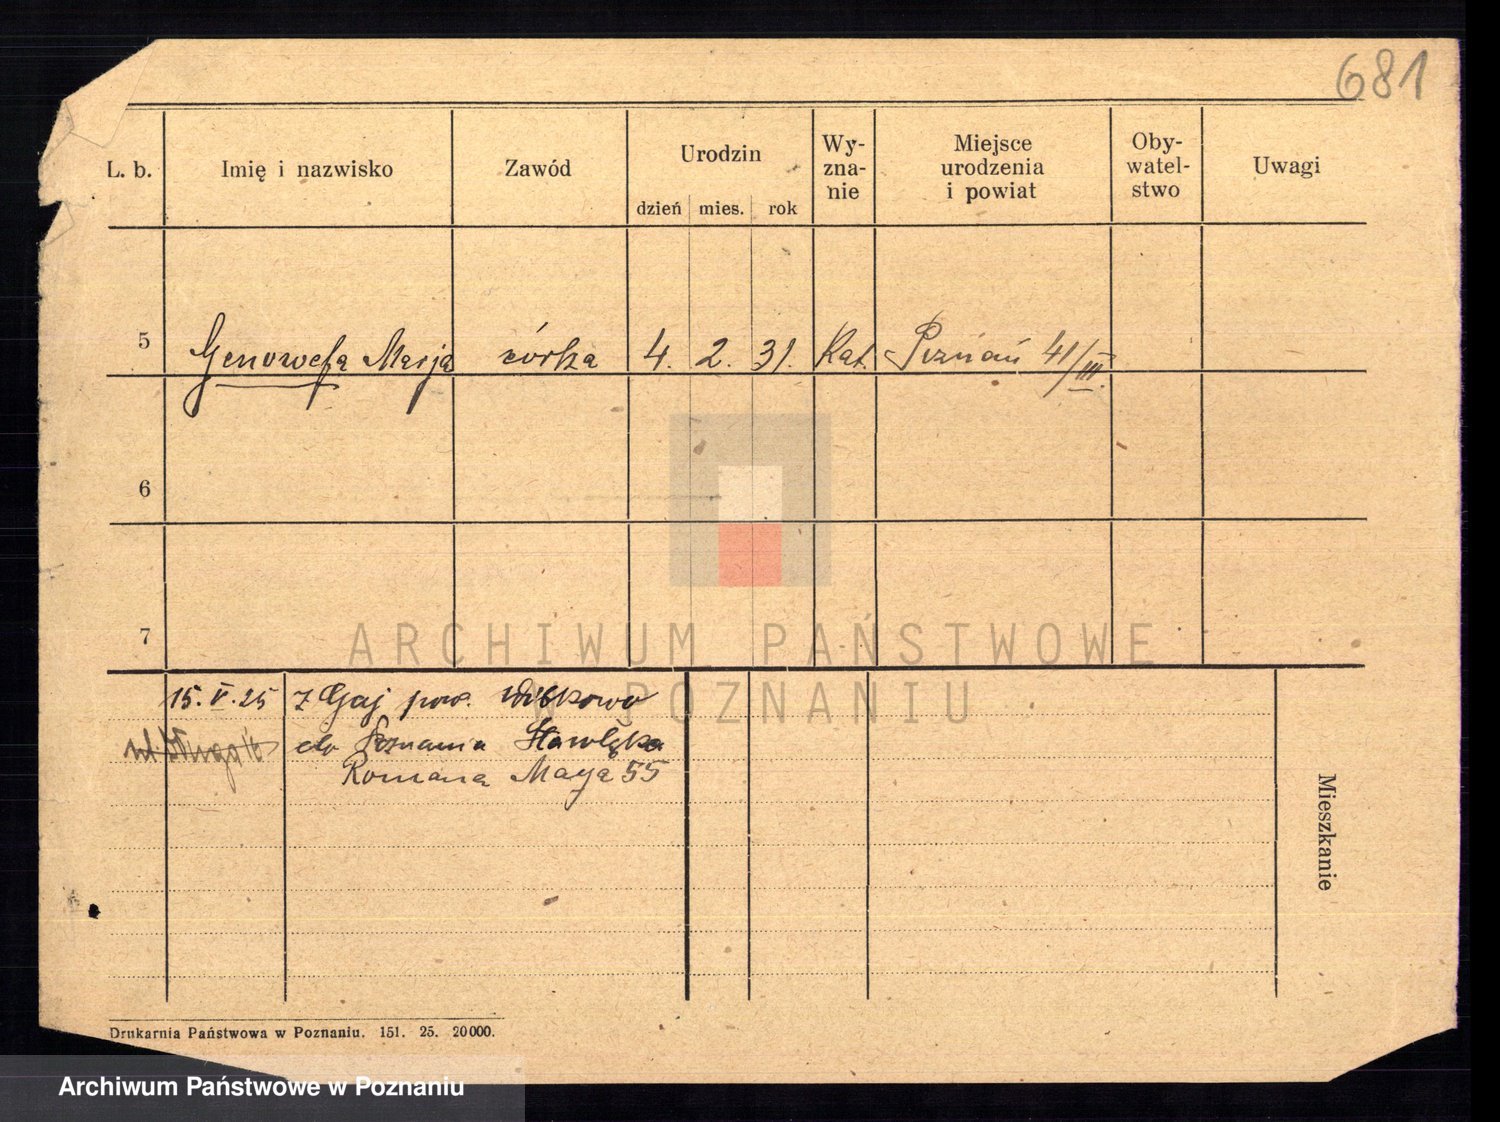 681
L. b. Imię i nazwisko Zawód Urodzin dzień mies. rok Wy-
zna-
nie Miejsce
urodzenia
i powiat Oby-
watel-
stwo Uwagi
5 Genowefa Marja córka 4. 2. 31. Kat. Poznań 41/III.
6
7
15. V. 25 z Gaj pow.
do Poznania
Romana Maya 55
Mieszkanie
Drukarnia Państwowa w Poznaniu. 151. 25. 20000.
ARCHIWUM PAŃSTWOWE
W POZNANIU
Archiwum Państwowe w Poznaniu